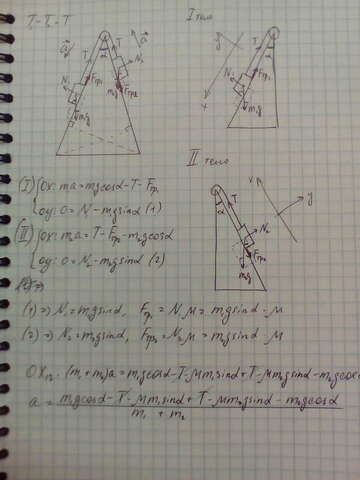 T₁=T₂=T
I тело
a⃗ T T a⃗
α
N₁ Fтр₁ N₂
Fтр₂
m₁g m₂g
y T
N₁ Fтр₁
x m₁g
II тело
x y
α T
N₂
Fтр₂
m₂g
(I) {OX: ma = m₁gcosα - T - Fтр₁
OY: 0 = N - m₁gsinα (1)
(II) {OX: m₂a = T - Fтр₂ - m₂gcosα
OY: 0 = N₂ - m₂gsinα (2)
(1) => N₁ = m₁gsinα, Fтр₁ = N₁μ = m₁gsinα · μ
(2) => N₂ = m₂gsinα, Fтр₂ = N₂μ = m₂gsinα · μ
(m₁ + m₂)a = m₁gcosα - T - μm₁sinα + T - μm₂gsinα - m₂gcosα
a = m₁gcosα - T - μm₁sinα + T - μm₂gsinα - m₂gcosα
m₁ + m₂